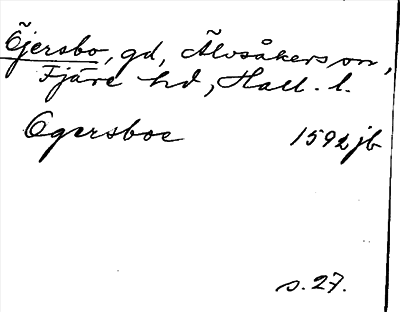 Öjersbo, gd, Älvsåkers sn,
Fjäre hd, Hall. l.
Ogersboe 1592 jb
s. 27.